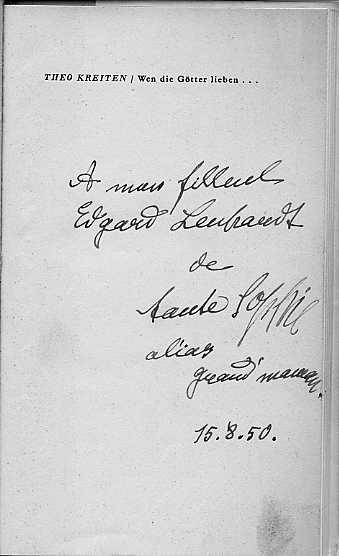 THEO KREITEN / Wen die Götter lieben . . .
A mon filleul
Edgard Leubrandt
de
tante Sophie
alias
grand'maman.
15.8.50.